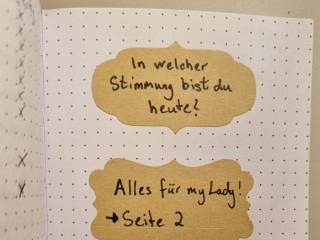 In welcher
Stimmung bist du
heute?
Alles für my Lady!
→ Seite 2